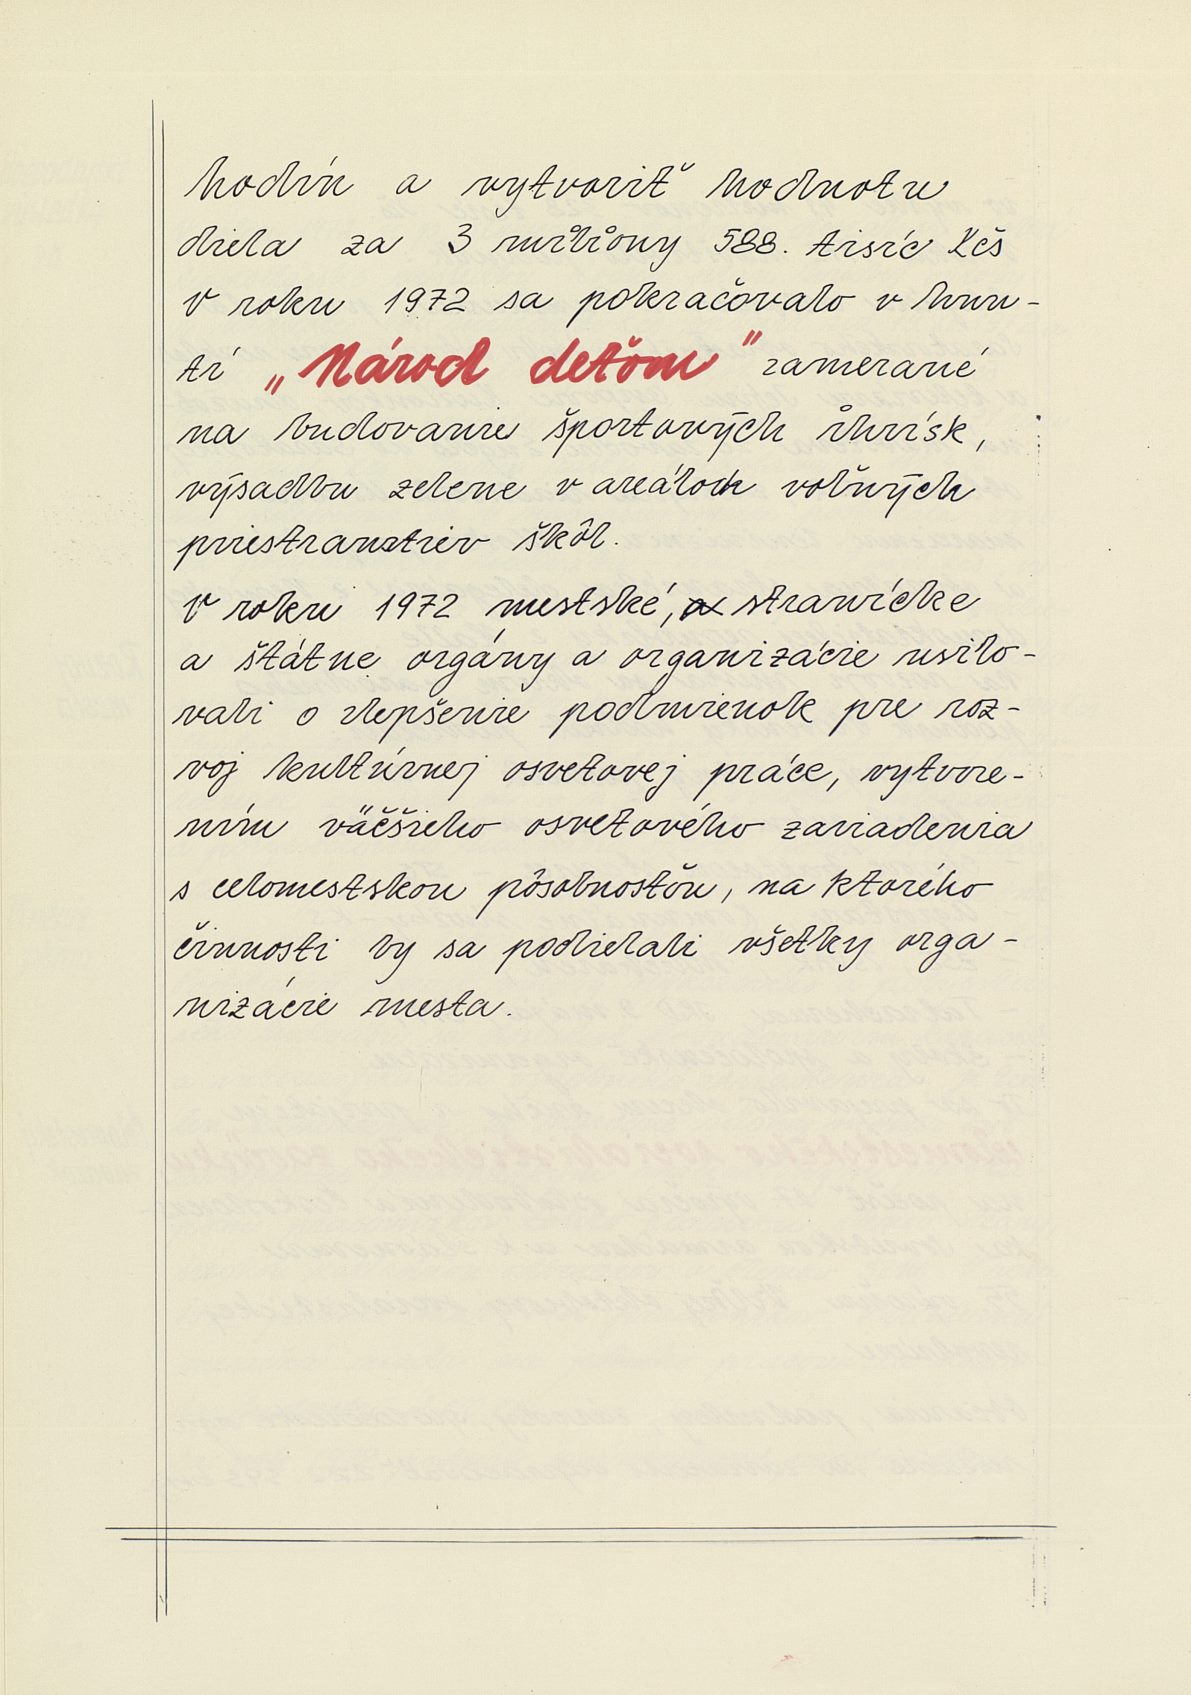 hodín a vytvoriť hodnotu
diela za 3 milióny 588. tisíc Kčs
V roku 1972 sa pokračovalo v hnu-
tí „Národ deťom" zamerané
na budovanie športových ihrísk,
výsadbu zelene v areáloch voľných
priestranstiev škôl.
V roku 1972 mestské, stranícke
a štátne orgány a organizácie usilo-
vali o zlepšenie podmienok pre roz-
voj kultúrnej osvetovej práce, vytvore-
ním väčšieho osvetového zariadenia
s celomestskou pôsobnosťou, na ktorého
činnosti by sa podielali všetky orga-
nizácie mesta.